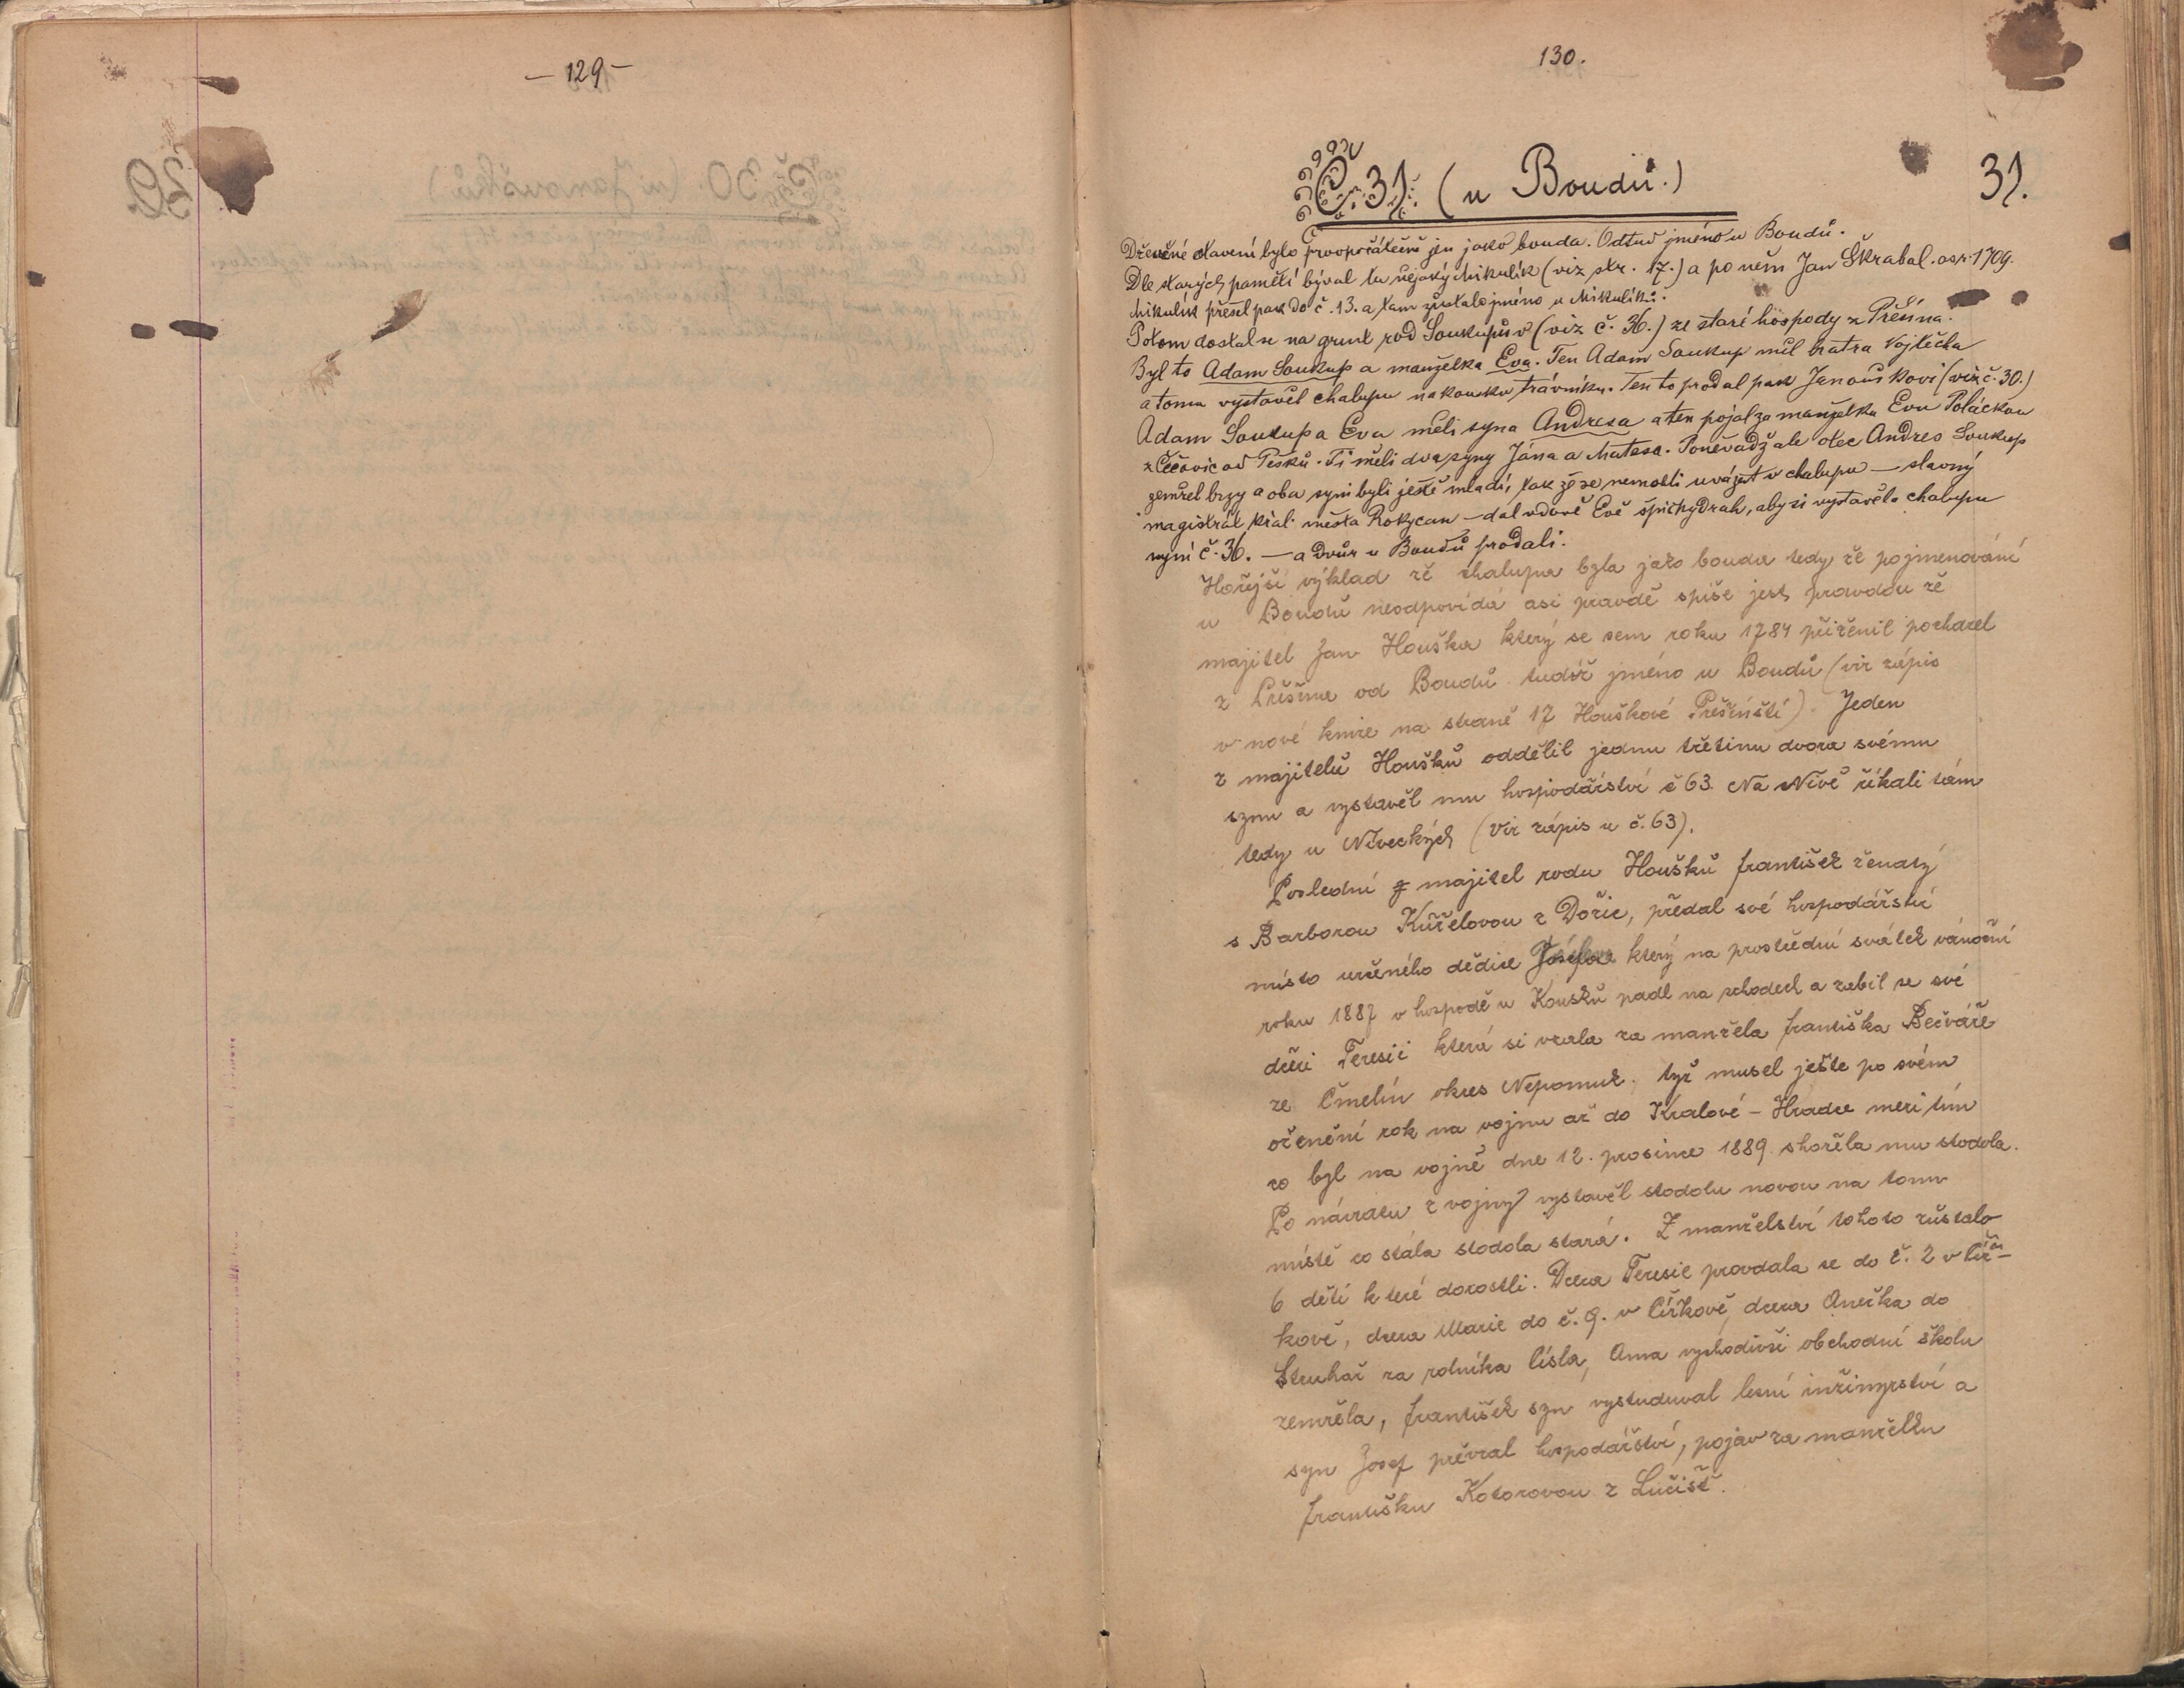 – 129 –
130.
31.
Č. 31. (u Boudů.)
Dřevěné stavení bylo prvopočátečně jen jako bouda. Odtud jméno u Boudů.
Dle starých pamětí býval tu nějaký Mikulík (viz str. 17.) a po něm Jan Škrabal. asi r. 1709.
Mikulík přešel pak do č. 13. a tam zůstalo jméno u Mikulíků.
Potom dostal se na grunt rod Soukupův (viz č. 36.) ze staré hospody z Přešína.
Byl to Adam Soukup a manželka Eva. Ten Adam Soukup měl bratra Vojtěcha
a tomu vystavěl chalupu na kousku trávníku. Ten to prodal pak Janouškovi (viz č. 30.)
Adam Soukup a Eva měli syna Andresa a ten pojal za manželku Evu Poláčkou
z Čečovic od Pešků. Ti měli dva syny Jána a Matesa. Poněvadž ale otec Andres Soukup
zemřel brzy a oba syni byli ještě mladí, tak že se nemohli uvázat v chalupu — slavný
magistrát král. města Rokycan — dal vdově Evě špichydrah, aby si vystavěla chalupu
nyní č. 36. — a dvůr u Boudů prodali.
Hořejší výklad že chalupa byla jako bouda tedy že pojmenování
u Boudů neodpovídá asi pravdě spíše jest pravdou že
majitel Jan Houška který se sem roku 1784 přiženil pocházel
z Přešína od Boudů tudíž jméno u Boudů (viz zápis
v nové knize na straně 17 Houškové Přešínští). Jeden
z majitelů Houšků oddělil jednu třetinu dvora svému
synu a vystavěl mu hospodářství č 63. Na Nivě říkali tám
tedy u Niveckých (viz zápis u č. 63).
Poslední majitel rodu Houšků František ženatý
s Barborou Kůželovou z Dožic, předal své hospodářství
místo určeného dědice Josefa který na prostřední svátek vánoční
roku 1887 v hospodě u Kousků padl na schodech a zabil se své
dceři Teresii která si vzala za manžela Františka Bečváře
ze Čmelín okres Nepomuk. týž musel ješte po svém
oženění rok na vojnu až do Králové-Hradce mezi tím
co byl na vojně dne 12. prosince 1889 shořela mu stodola.
Po návratu z vojny vystavěl stodolu novou na tomu
místě co stála stodola stará. Z manželství tohoto zůstalo
6 dětí které dorostli. Dcera Teresie provdala se do č. 2 v Číž-
kově, dcera Marie do č. 9. v Čížkově, dcera Anežka do
Struhař za rolníka Císla, Anna vychodivši obchodní školu
zemřela, František syn vystudoval lesní inžinyrství a
syn Josef převzal hospodářství, pojav za manželku
Františku Kotorovou z Lučišť.